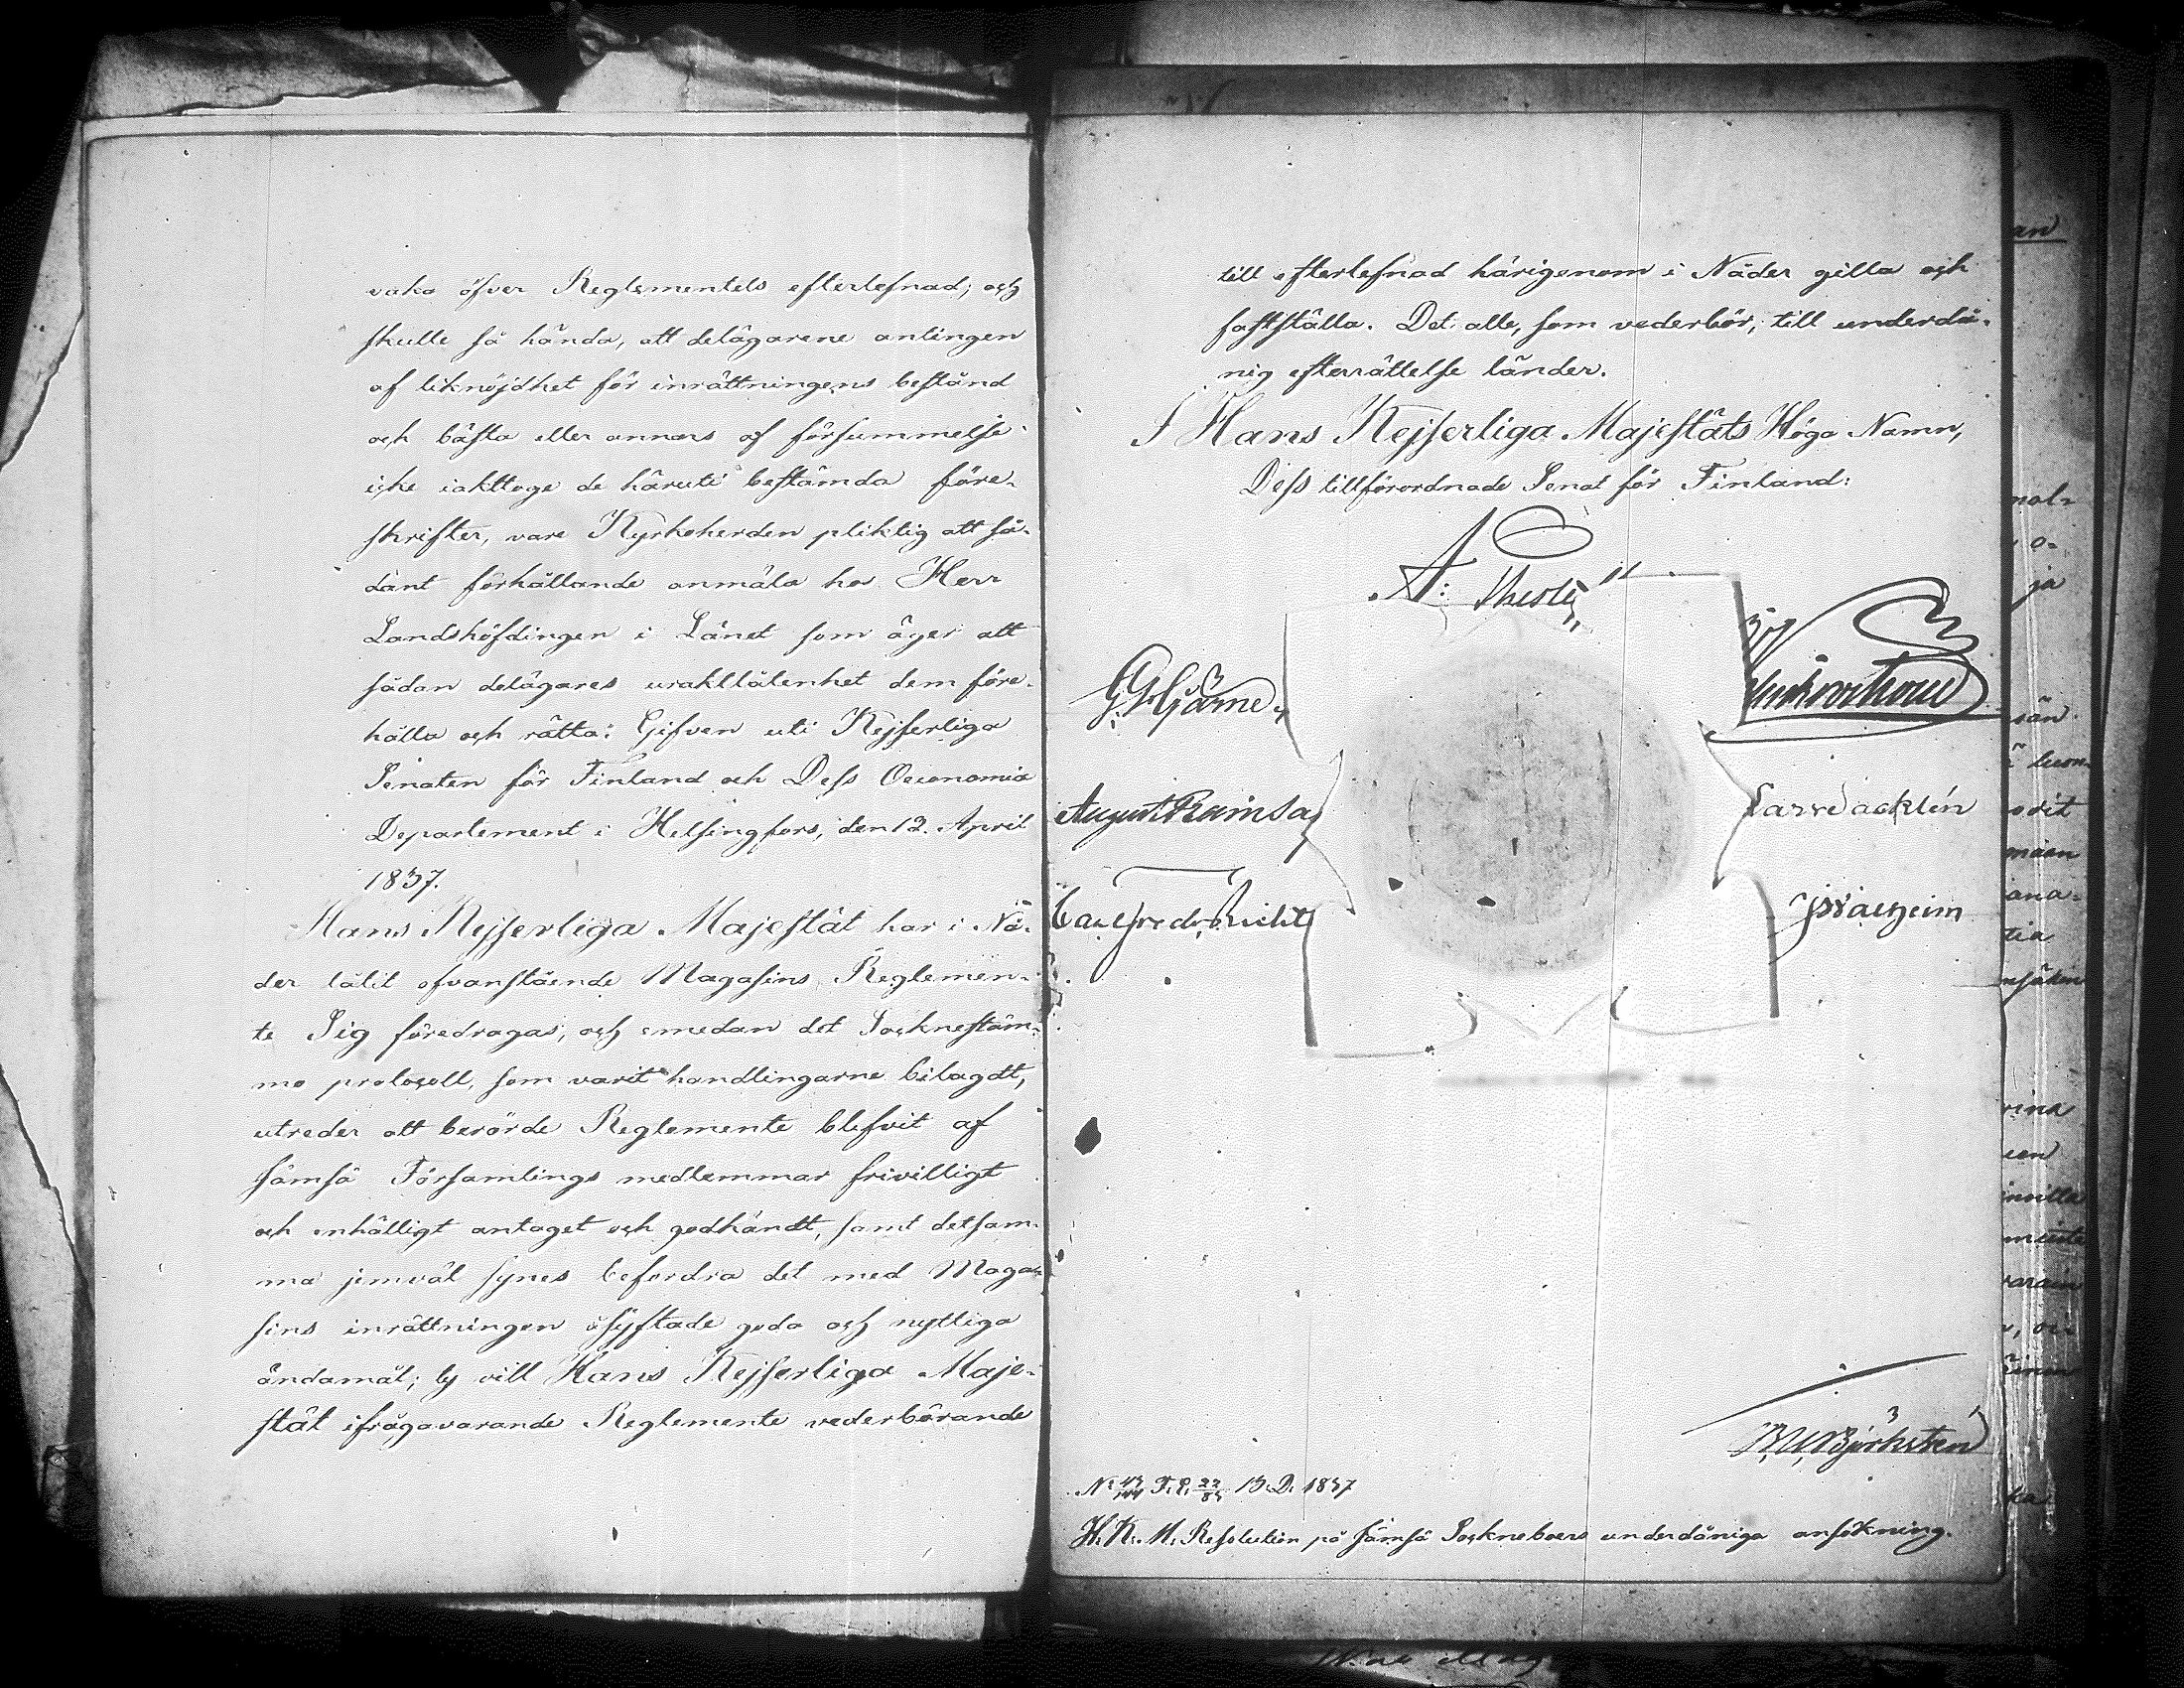 vaka öfver Reglementets efterlefnad; och
skulle så hända, att delägarene antingen
af liknöjdhet för inrättningens bestånd
och bästa eller annars af försummelse
icke iakttoge de häruti bestämda före-
skrifter, vare Kyrkoherden pliktig att så-
dant förhållande anmäla hos Herr
Landshöfdingen i Länet som äger att
sådan delägares uraktlåtenhet dem före-
hålla och rätta. Gifven uti Kejserliga
Senaten för Finland och Dess Oeconomie
Departement i Helsingfors, den 12. April
1837.
Hans Kejserliga Majestät har i Nå-
der låtit ofvanstående Magasins Reglemen-
te Sig föredragas, och emedan det Sockenstäm-
mo protocoll, som varit handlingarne bilagdt,
utreder att berörde Reglemente blefvit af
Jämsä Församlings medlemmar frivilligt
och enhälligt antaget och godkändt, samt detsam-
ma jemväl synes befordra det med Maga-
sins inrättningen åsyftade goda och nyttiga
ändamål; ty vill Hans Kejserliga Maje-
stät ifrågavarande Reglemente vederbörande
till efterlefnad härigenom i Nåder gilla och
fastställa. Det alle, som vederbör, till underdå-
nig efterrättelse länder.
I Hans Kejserliga Majestäts Höga Namn,
Dess tillförordnade Senat för Finland:
G. Hjärne
August Ramsa
Lars Sacklén
Carl Fredr. Richt
B. U. Björksten
No 43/144 F. E. 22/85 B. D. 1837
H. K. M. Resolution på Jämsä Sockneboers underdåniga ansökning.